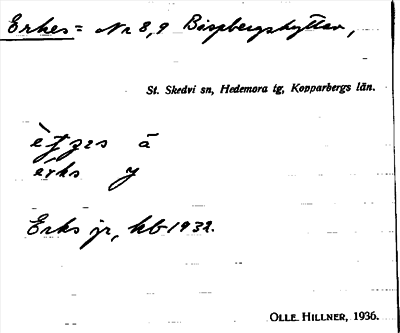 Erkes = Nr 8,9 Bispbergshyttan,
St. Skedvi sn, Hedemora tg, Kopparbergs län.
ä
erks y
Erks jr, kb 1932.
OLLE HILLNER, 1936.